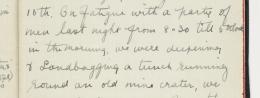 10th. On fatigue with a party of
men last night from 8-30 till 5 oclock
in the morning, we were deepening
& Sandbagging a trench running
round an old mine crater, we